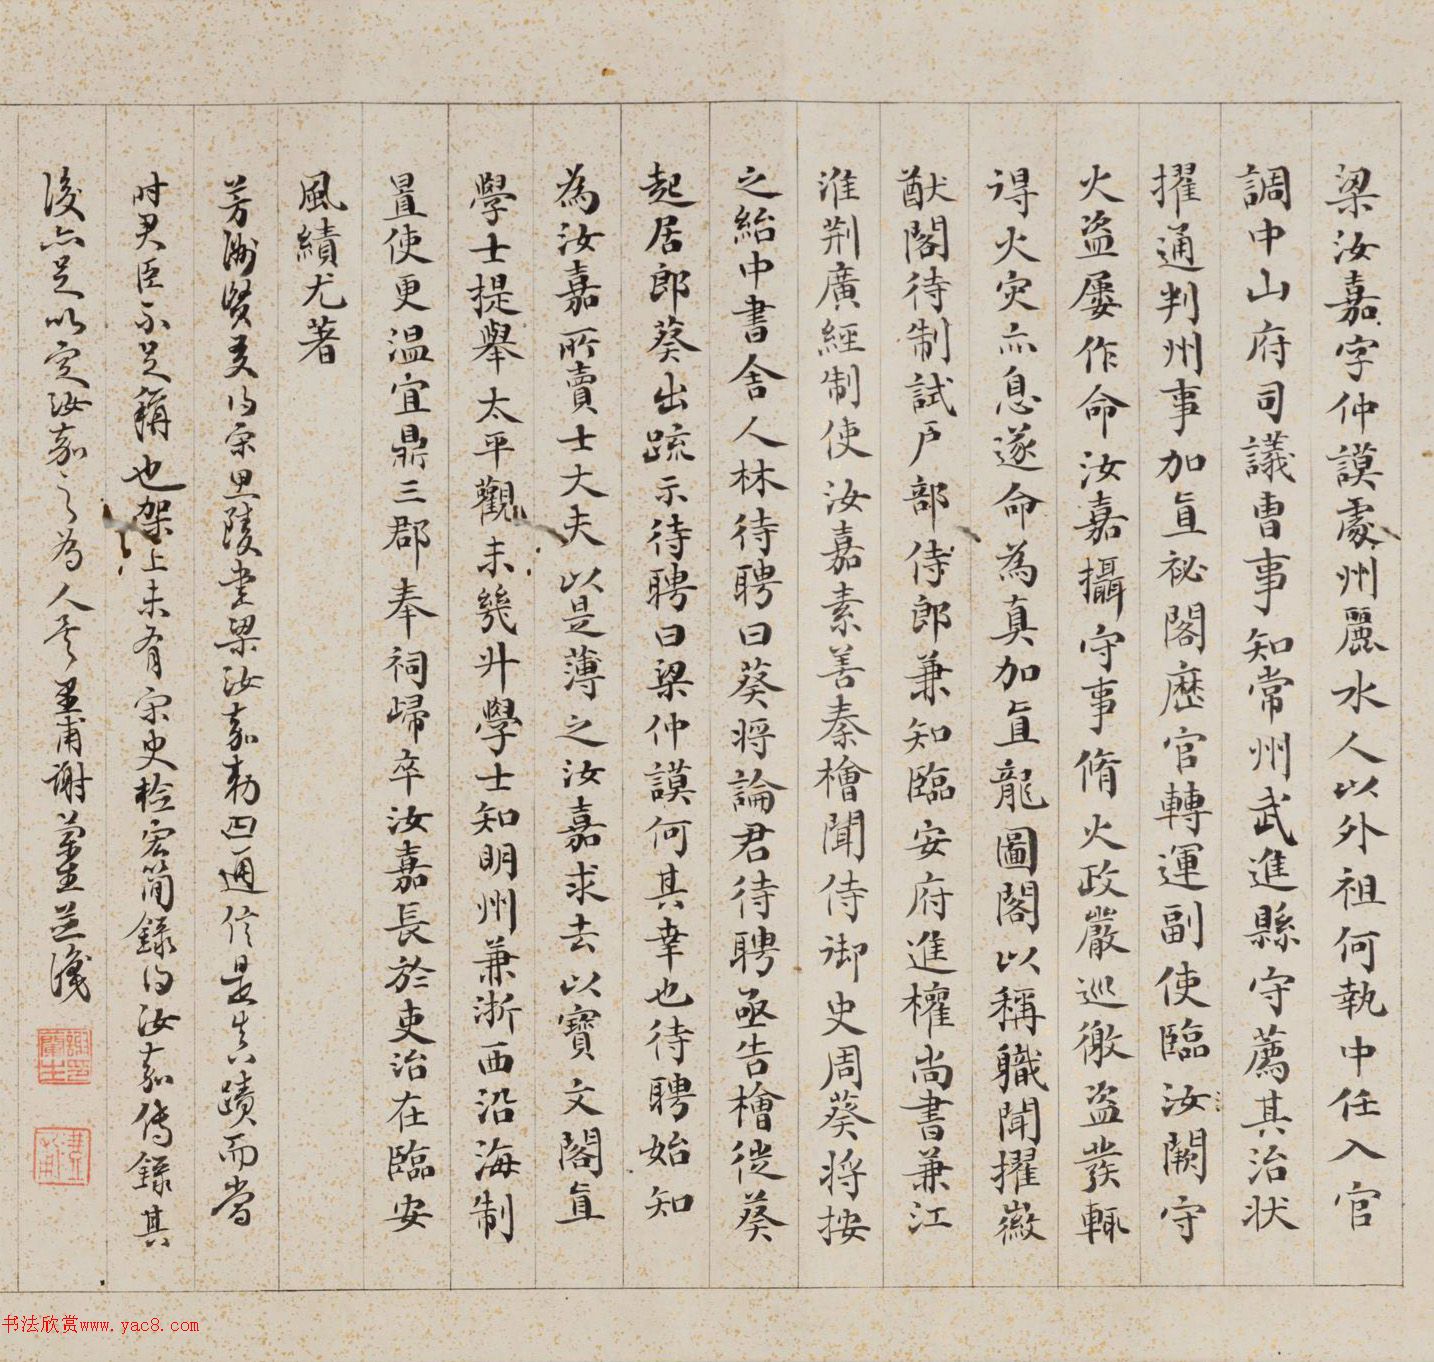 梁汝嘉字仲謨處州麗水人以外祖何執中任入官
調中山府司議曹事知常州武進縣守薦其治狀
擢通判州事加直祕閣歷官轉運副使臨汝闕守
火盜屢作命汝嘉攝守事脩火政嚴巡徼盜發輒
得火灾亦息遂命為真加直龍圖閣以稱職聞擢徽
猷閣待制試戶部侍郎兼知臨安府進權尚書兼江
淮荆廣經制使汝嘉素善秦檜聞侍御史周葵將按
之紿中書舍人林待聘曰葵將論君待聘亟告檜徙葵
起居郎葵出疏示待聘曰梁仲謨何其幸也待聘始知
為汝嘉所賣士大夫以是薄之汝嘉求去以寶文閣直
學士提舉太平觀未幾升學士知明州兼浙西沿海制
置使更温宣鼎三郡奉祠歸卒汝嘉長於吏治在臨安
風績尤著
芳洲賢友得宋思陵書梁汝嘉勅四通信是真蹟而當
時君臣不足稱也架上未有宋史檢宏簡錄得汝嘉傳錄其
後亦足以定汝嘉之為人矣 里甫謝蘭生並識
謝印蘭生
里甫
书法欣赏www.yac8.com